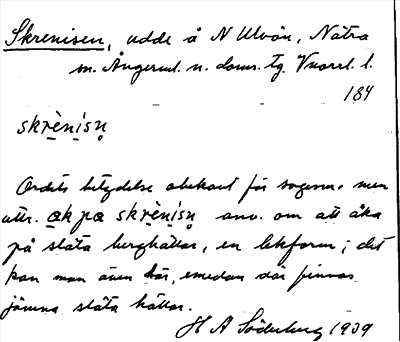 Skrenisen, udde å N Ulvön, Nätra
sn. Ångerml. n. doms. tg. Vnorrl. l.
184
skrènisn̥
Ordets betydelse obekant för sagesm. men
uttr. ak pa skrènisn̥ anv. om att åka
på släta berghällar, en lekform; det
kan man även här, emedan där finnas
jämna släta hällar.
H A Söderberg 1939